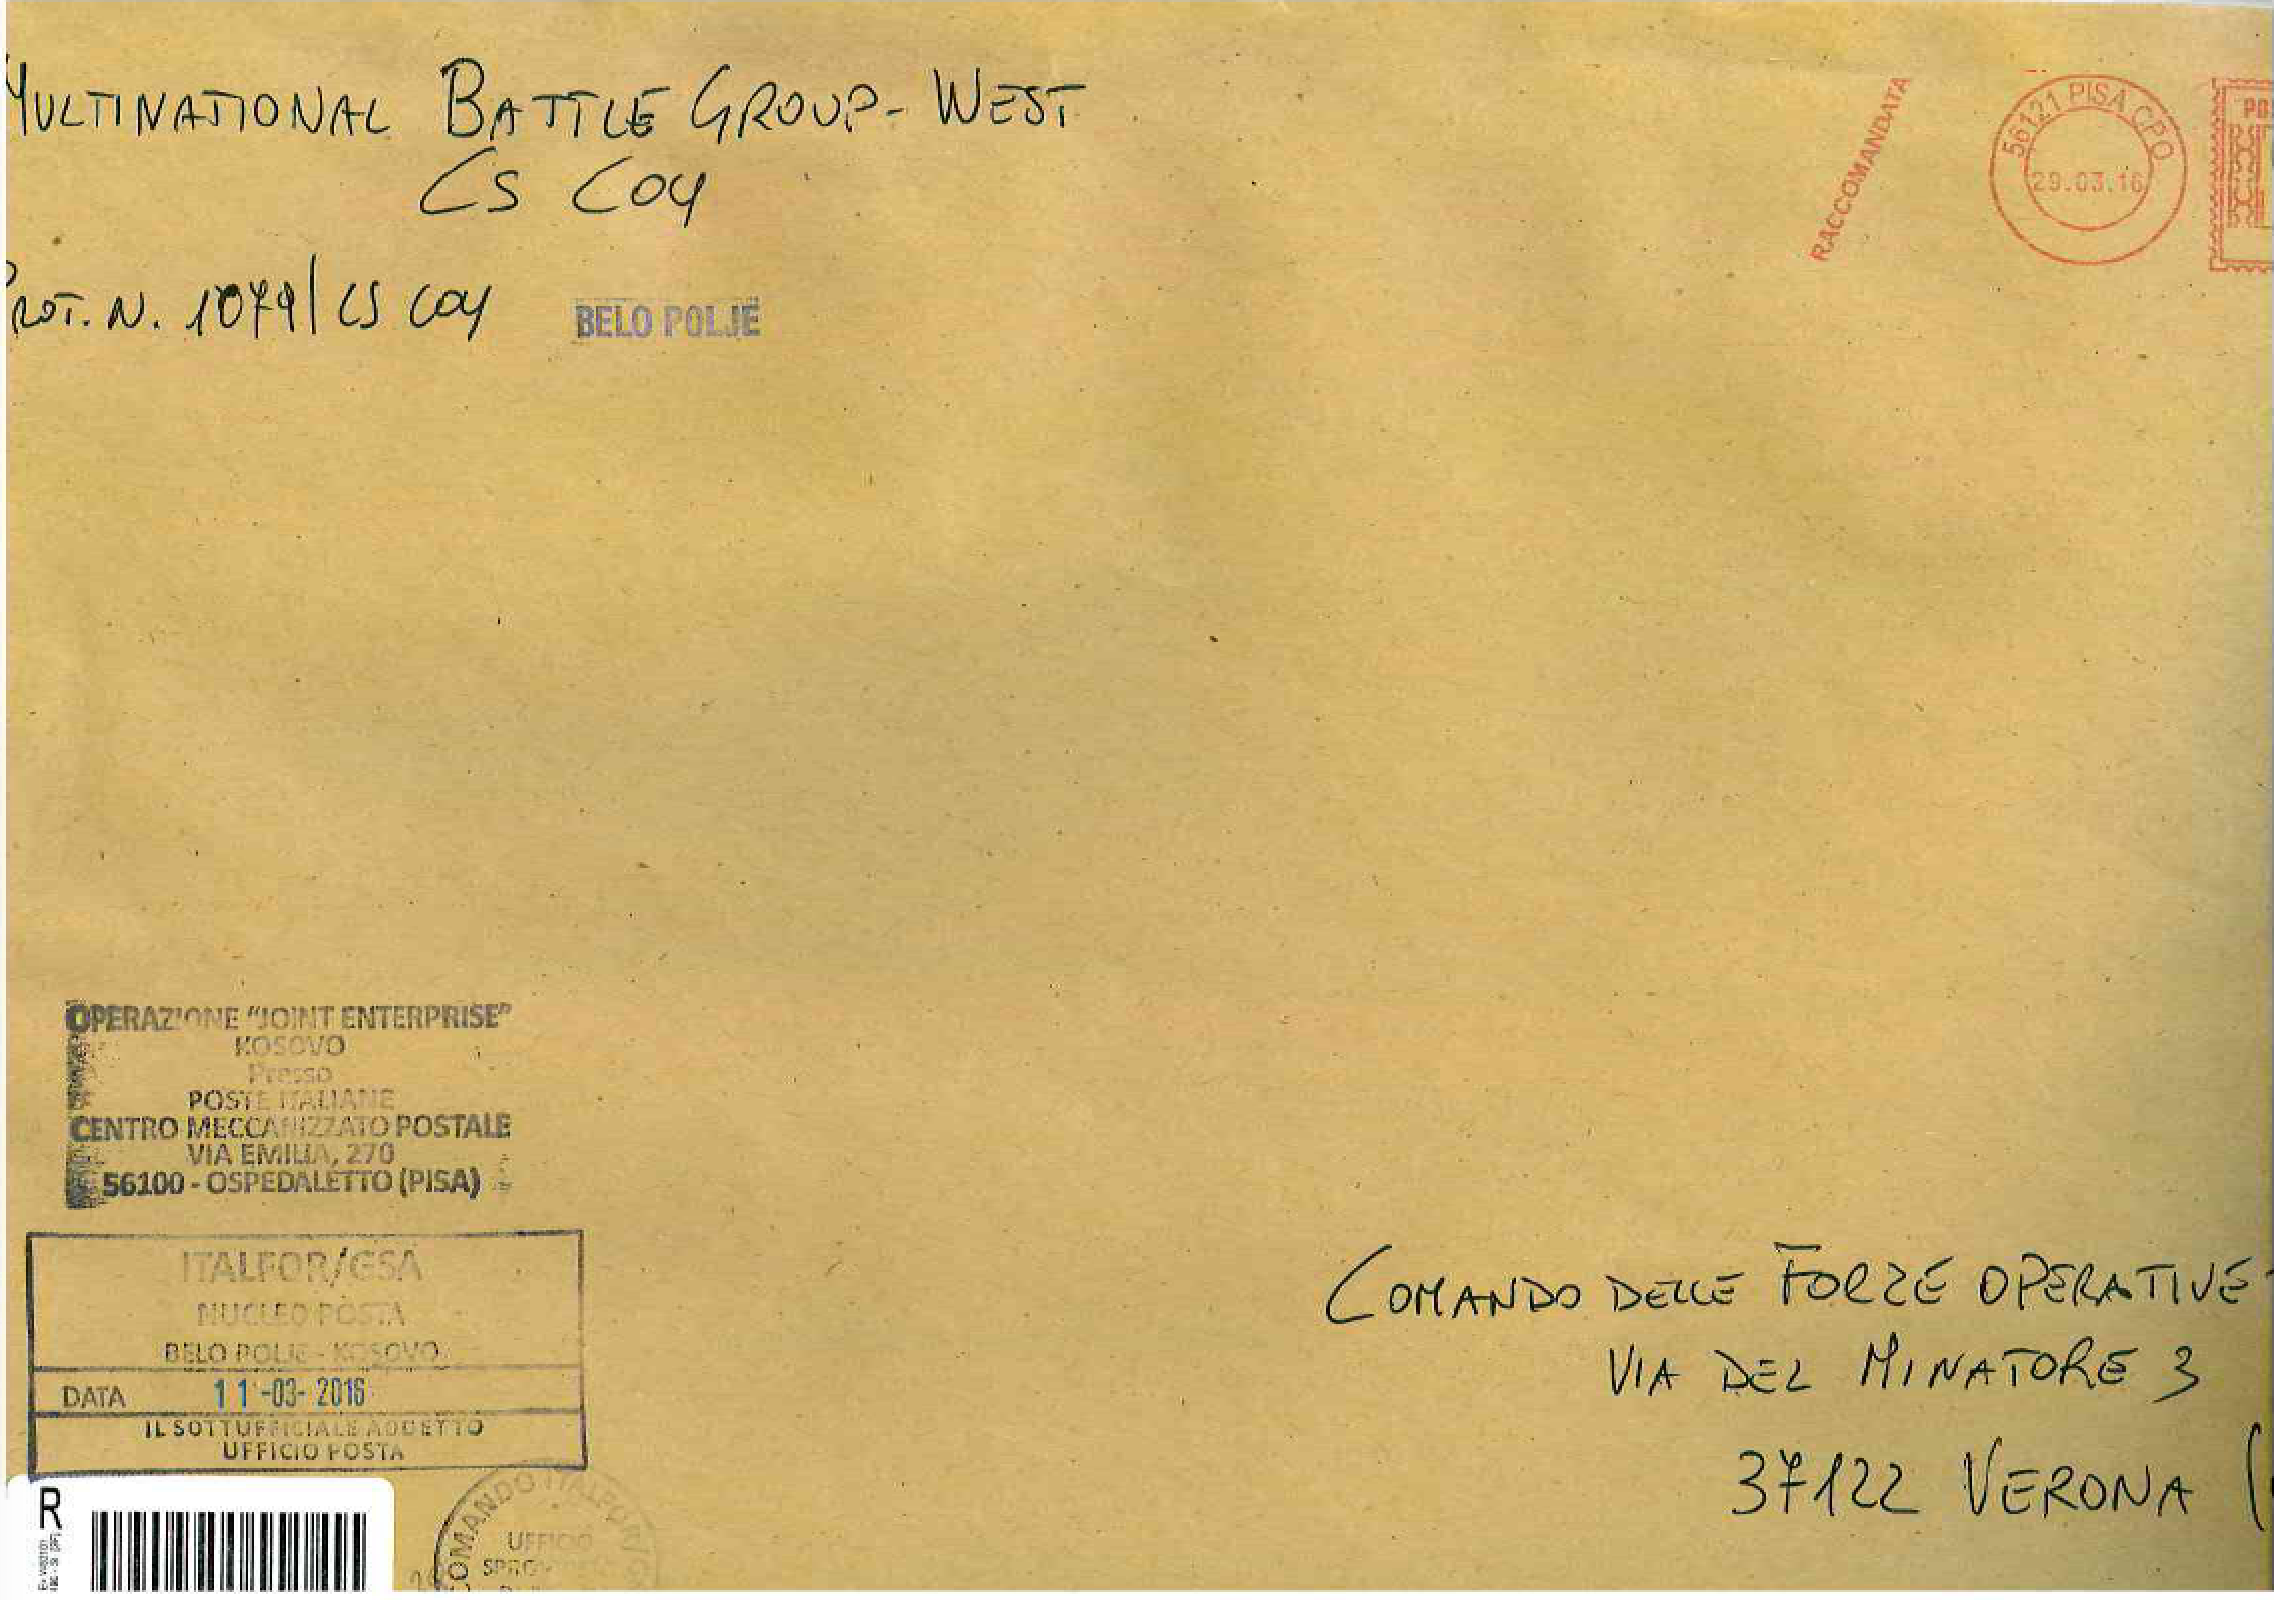 MULTINATIONAL BATTLE GROUP - WEST
CS COY
PROT. N. 1079/CS COY
BELO POLJE
RACCOMANDATA
56121 PISA CPO
29.03.16
OPERAZIONE "JOINT ENTERPRISE"
KOSOVO
Presso
POSTE ITALIANE
CENTRO MECCANIZZATO POSTALE
VIA EMILIA, 270
56100 - OSPEDALETTO (PISA)
ITALFOR/GSA
NUCLEO POSTA
BELO POLJE - KOSOVO
DATA 11-03-2016
IL SOTTUFFICIALE ADDETTO
UFFICIO POSTA
COMANDO DELLE FORZE OPERATIVE
VIA DEL MINATORE 3
37122 VERONA (
R
COMANDO ITALFOR/G
UFFICIO